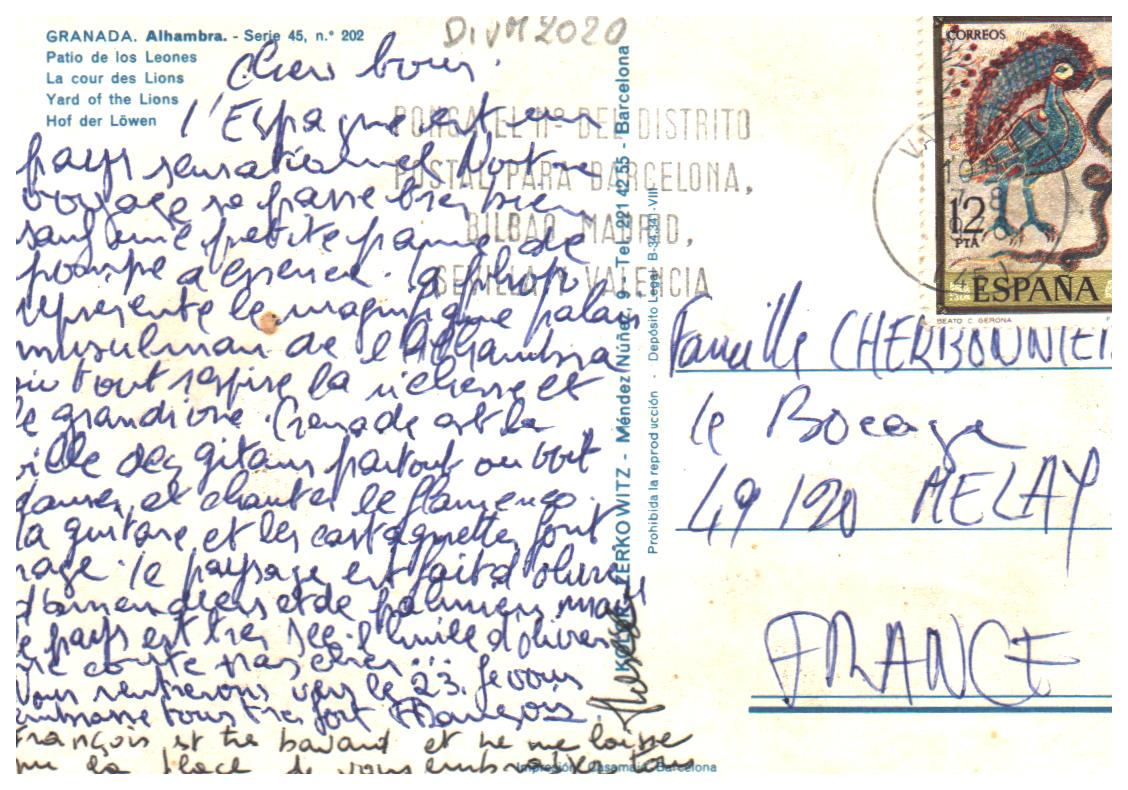 GRANADA. Alhambra. - Serie 45, n.° 202
Patio de los Leones
La cour des Lions
Yard of the Lions
Hof der Löwen
DIVM2020
Chers tous.
l'Espagne est un
pays sensationnel Notre
voyage se passe très bien
sauf une petite panne de
pompe à essence. la photo
represente le magnifique palais
musulman de l'Alhambra
où tout respire la richesse et
le grandiose. Grenade est la
ville des gitans partout on voit
danser et chanter le flamenco.
la guitare et les castagnettes font
rage. le paysage est fait d'oliviers
d'amendiers et de palmiers, mais
le pays est très sec. l'huile d'olives
ne coute pas cher...
Nous rentrerons vers le 23. Je vous
embrasse tous très fort François
François est très bavard et ne me laisse
que la place de vous embrasser tous
KOLOR-ZERKOWITZ - Méndez Núñez, 9 - Tel. 221 42 55 - Barcelona
Prohibida la reproducción · Depósito Legal B-3434-VIII
Impresión: Casamajó-Barcelona
PONGA EL Nº DEL DISTRITO
POSTAL PARA BARCELONA,
BILBAO, MADRID,
SEVILLA Y VALENCIA
CORREOS
12
PTA
ESPAÑA
BEATO C. GERONA
Famille CHERBONNIER
le Bocage
49120 MELAY
FRANCE